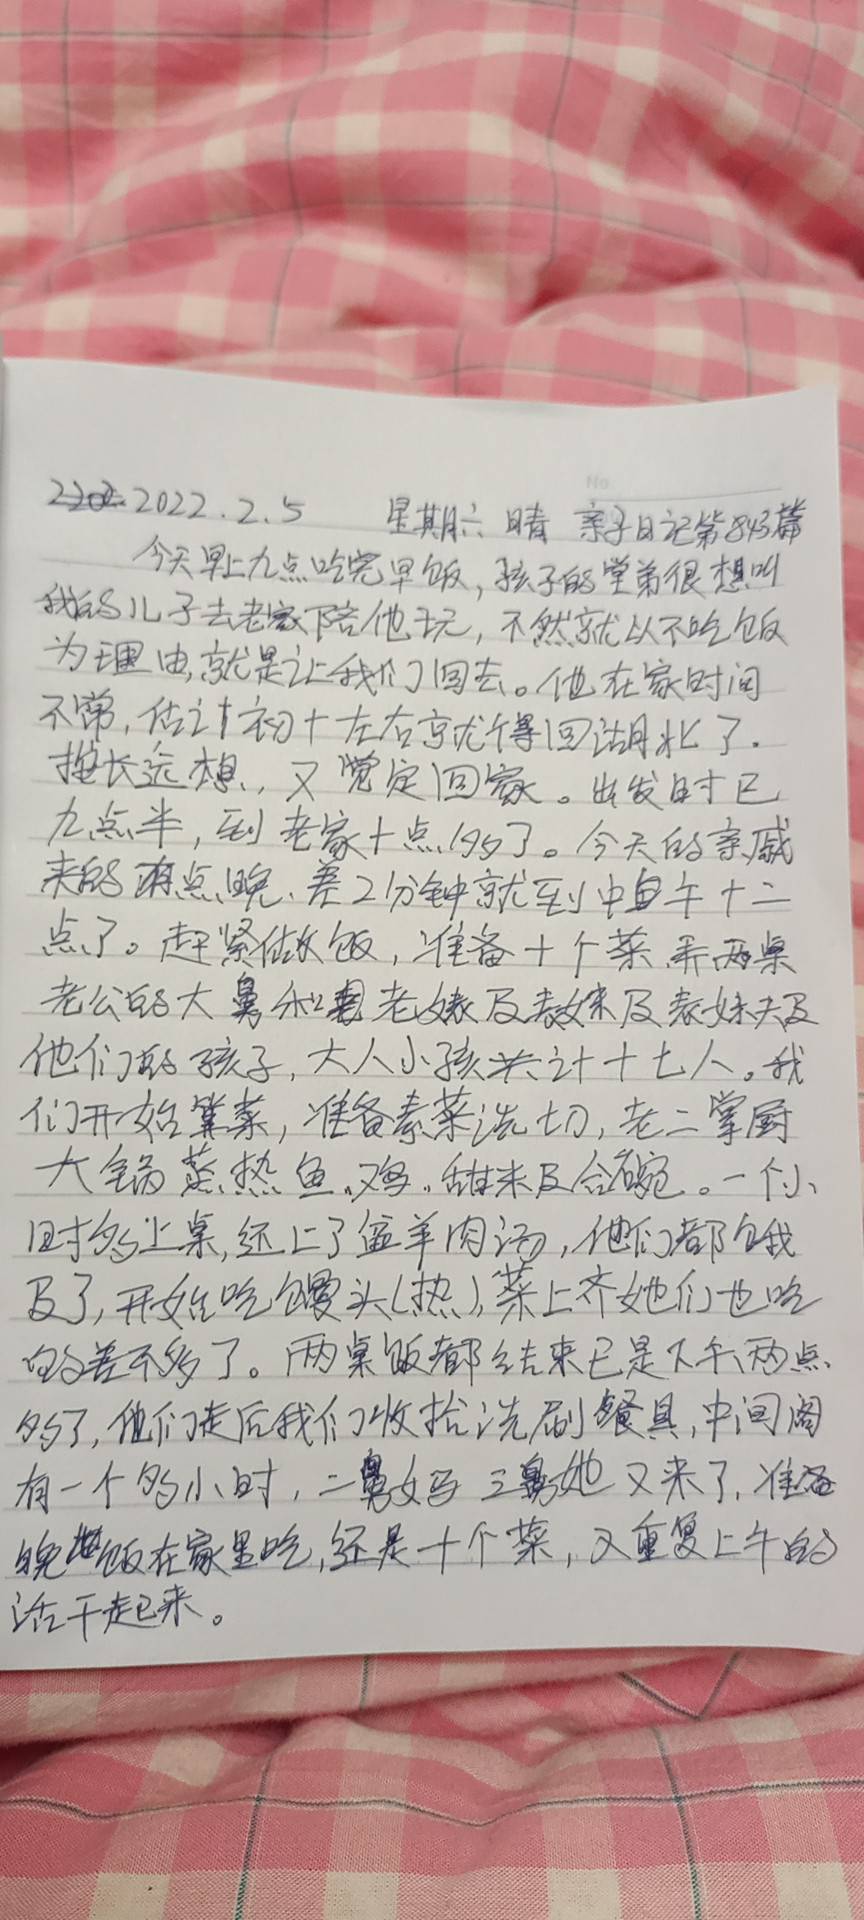 2022.2.5 星期六 晴 亲子日记第843篇
今天早上九点吃完早饭,孩子的堂弟很想叫
我的儿子去老家陪他玩,不然就以不吃饭
为理由,就是让我们回去。他在家时间
不常,估计初十左右就得回湖北了.
长远想,又觉定回家。出发时已
九点半,到老家十点多了。今天的亲戚
来的有点晚、差2分钟就到中午十二
点了。赶紧做饭,准备十个菜 弄两桌
老公的大舅和老妗及表妹及表妹夫及
他们的孩子,大人小孩共计十七人。我
们开始算菜,准备素菜洗切,老二掌厨
大锅蒸热鱼、鸡、甜米及合碗。一个小
时多上桌,还上了盆羊肉汤,他们都自我
及了,开始吃馒头(热),菜上齐她们也吃
的差不多了。两桌饭都结束已是下午两点
多了,他们走后我们收拾洗刷餐具,中间阁
有一个多小时,二舅妈三舅她又来了,准备
晚饭在家里吃,还是十个菜,又重复上午的
活干起已来。